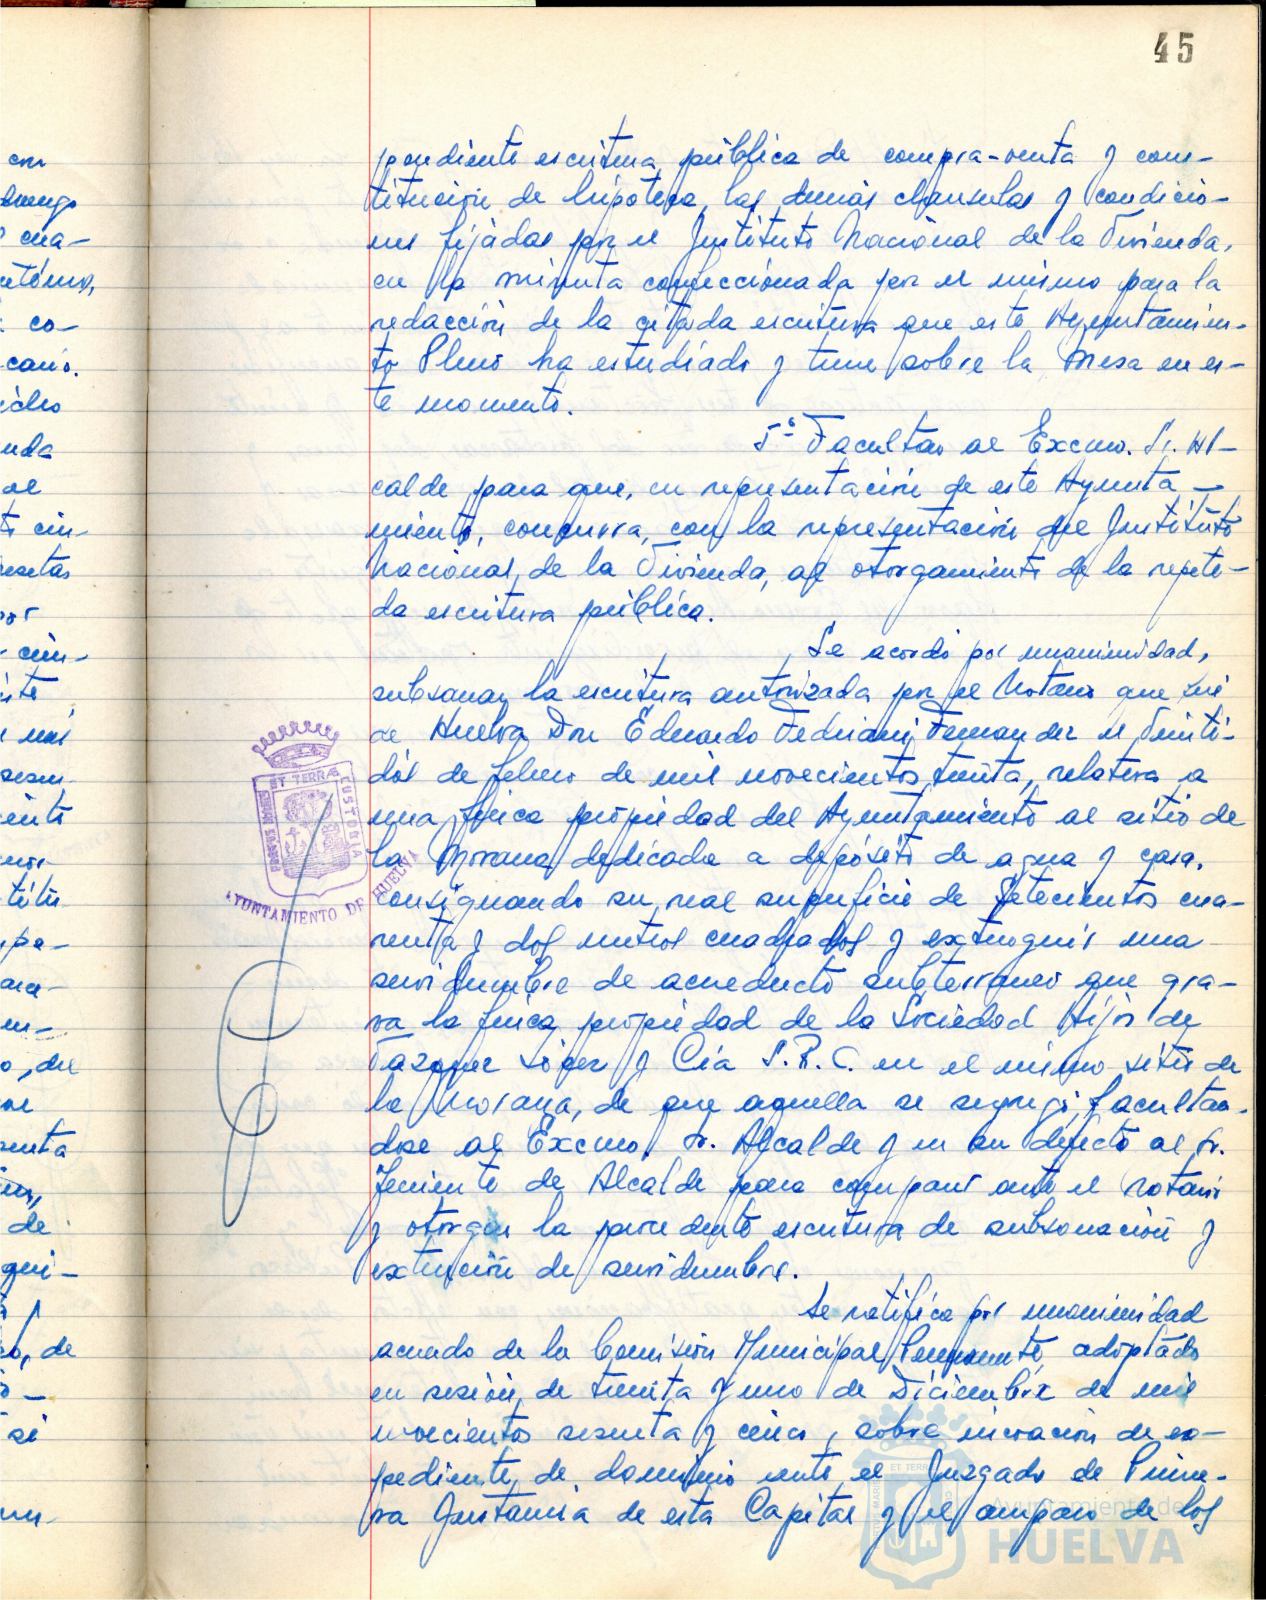 45
pondiente escritura pública de compra-venta y cons-
titución de hipoteca, las demás clausulas y condicio-
nes fijadas por el Instituto Nacional de la Vivienda,
en la minuta confeccionada por el mismo para la
redacción de la citada escritura que este Ayuntamien-
to Pleno ha estudiado y tiene sobre la Mesa en es-
te momento.
5º Facultar al Excmo. Sr. Al-
calde para que, en representación de este Ayunta-
miento, concurra, con la representación del Instituto
Nacional de la Vivienda, al otorgamiento de la repeti-
da escritura pública.
Se acordó por unanimidad,
subsanar la escritura autorizada por el Notario que fué
de Huelva Don Eduardo Fedriani Fernandez el Veinti-
dós de febrero de mil novecientos treinta, relativa a
una finca propiedad del Ayuntamiento al sitio de
la Morana dedicada a depósito de agua y casa,
consignando su real superficie de setecientos cua-
renta y dos metros cuadrados y extinguir una
servidumbre de acueducto subterraneo que gra-
va la finca propiedad de la Sociedad Hijos de
Vazquez López y Cía S.R.C. en el mismo sitio de
la Morana, de que aquella se segregó, facultan-
dose al Excmo. Sr. Alcalde y en su defecto al Sr.
Teniente de Alcalde para comparecer ante el Notario
y otorgar la procedente escritura de subsanación y
extinción de servidumbre.
Se ratifica por unanimidad
acuerdo de la Comisión Municipal Permanente, adoptado
en sesión de treinta y uno de Diciembre de mil
novecientos sesenta y cinco, sobre incoacion de ex-
pediente de dominio ante el Juzgado de Prime-
ra Instancia de esta Capital y el amparo de los
ET TERRÆ CUSTODIA
AYUNTAMIENTO DE HUELVA
Ayuntamiento de
HUELVA